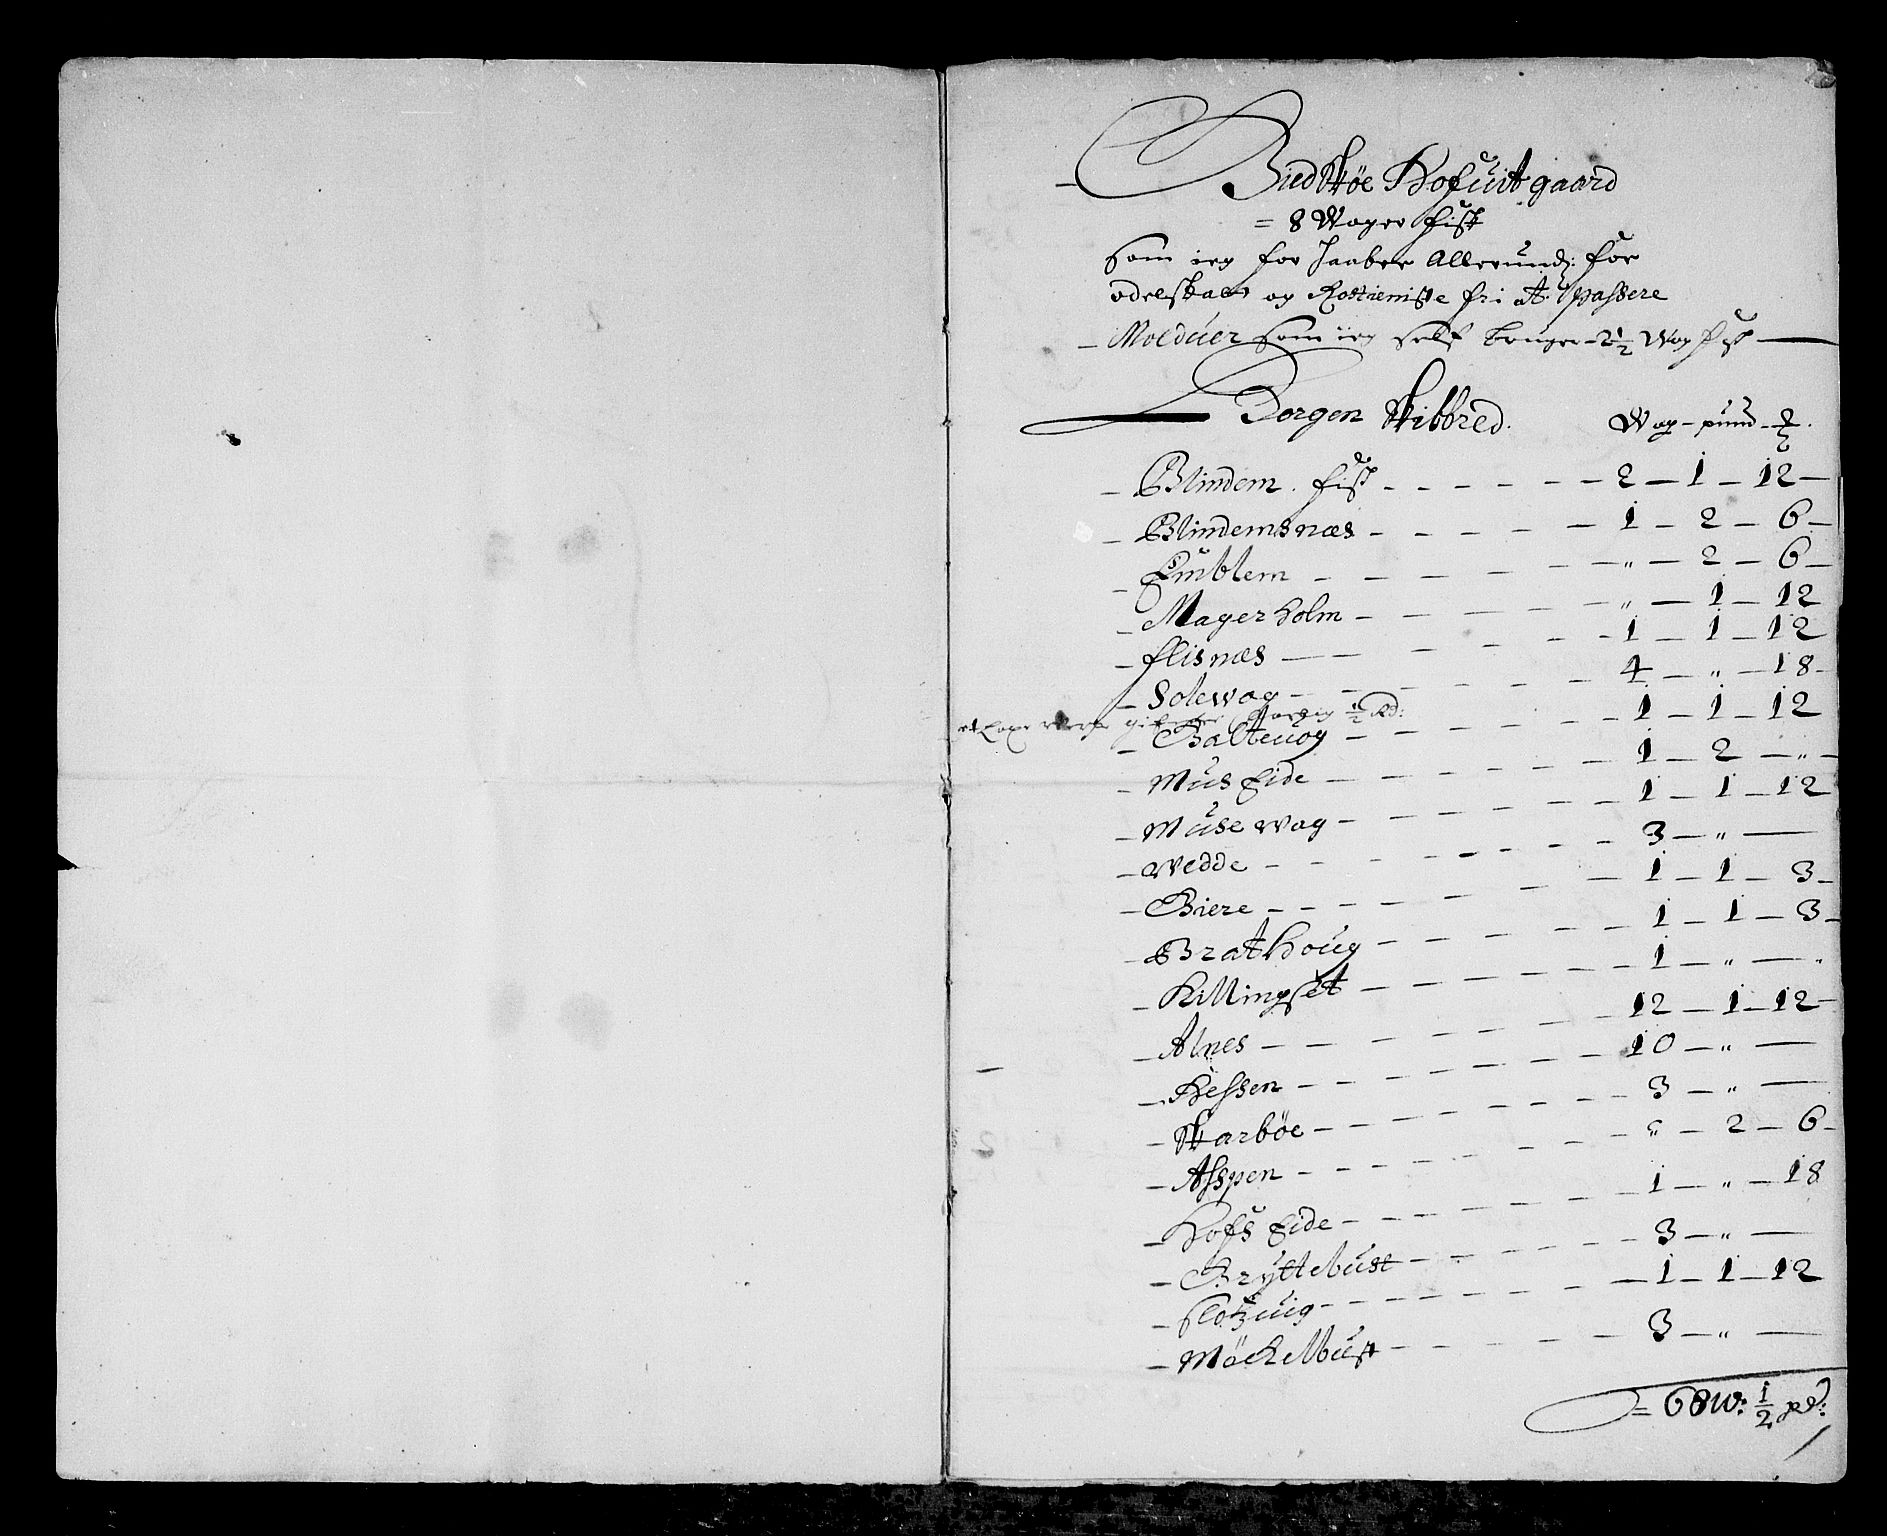 Giedskøe Hofuit gaard
= 8 Woger fisk
som ieg for haaber Allerund: for
odelskat og Rostieniste fri at passere
- Molduer som ieg self bruger - 2 1/2 Wog fisk —
Borgen Skibbred. Wog - pund -
- Blindem. fisk - - - - - - 2 - 1 - 12 -
- Blindemsnæs - - - - - 1 - 2 - 6 -
- Emblem - - - - - " - 2 - 6 -
- Magerholm - - - - - " - 1 - 12
- flisnæs - - - - - 1 - 1 - 12
- Solewog - - - - - 4 - " - 18 -
1/2 Rd:
- Balteuog - - - - - 1 - 1 - 12
- Mus Eide - - - - - 1 - 2 - " -
- Musewog - - - - - 1 - 1 - 12
- Wedde - - - - - 3 - " -
- Giere - - - - - 1 - 1 - 3 -
- Brathoug - - - - - 1 - 1 - 3 -
- Killingset - - - - - 1 - " - "
- Alnes - - - - - 12 - 1 - 12 -
- Hessen - - - - - 10 - " -
- Skarbøe - - - - - 3 - " -
- Asspen - - - - - " - 2 - 6 -
- Hofs Eide - - - - - 1 - " - 18
- Gryttebust - - - - - 3 - " -
- flotzuig - - - - - 1 - 1 - 12
- Möckelbust - - - - - 3 - " -
= 68 W: 1/2 pd: